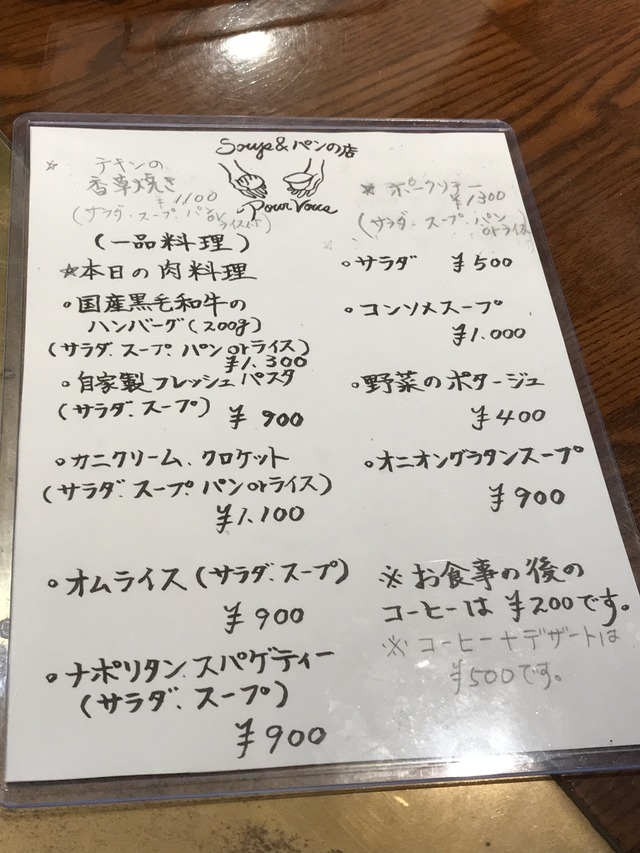 Soup&パンの店
Pour Vous
* チキンの
香草焼き
¥1100
(サラダ.スープ.パンorライス付)
(一品料理)
☆本日の肉料理
。国産黒毛和牛の
ハンバーグ(200g)
(サラダ.スープ.パンorライス)
¥1.300
。自家製フレッシュパスタ
(サラダ.スープ) ¥900
。カニクリーム.クロケット
(サラダ.スープ.パンorライス)
¥1.100
。オムライス(サラダ.スープ)
¥900
。ナポリタン.スパゲティー
(サラダ.スープ)
¥900
* ポークソテー
¥1300
(サラダ.スープ.パン
orライス)
。サラダ ¥500
。コンソメスープ
¥1.000
。野菜のポタージュ
¥400
。オニオングラタンスープ
¥900
※お食事の後の
コーヒーは¥200です。
※コーヒー+デザートは
¥500です。